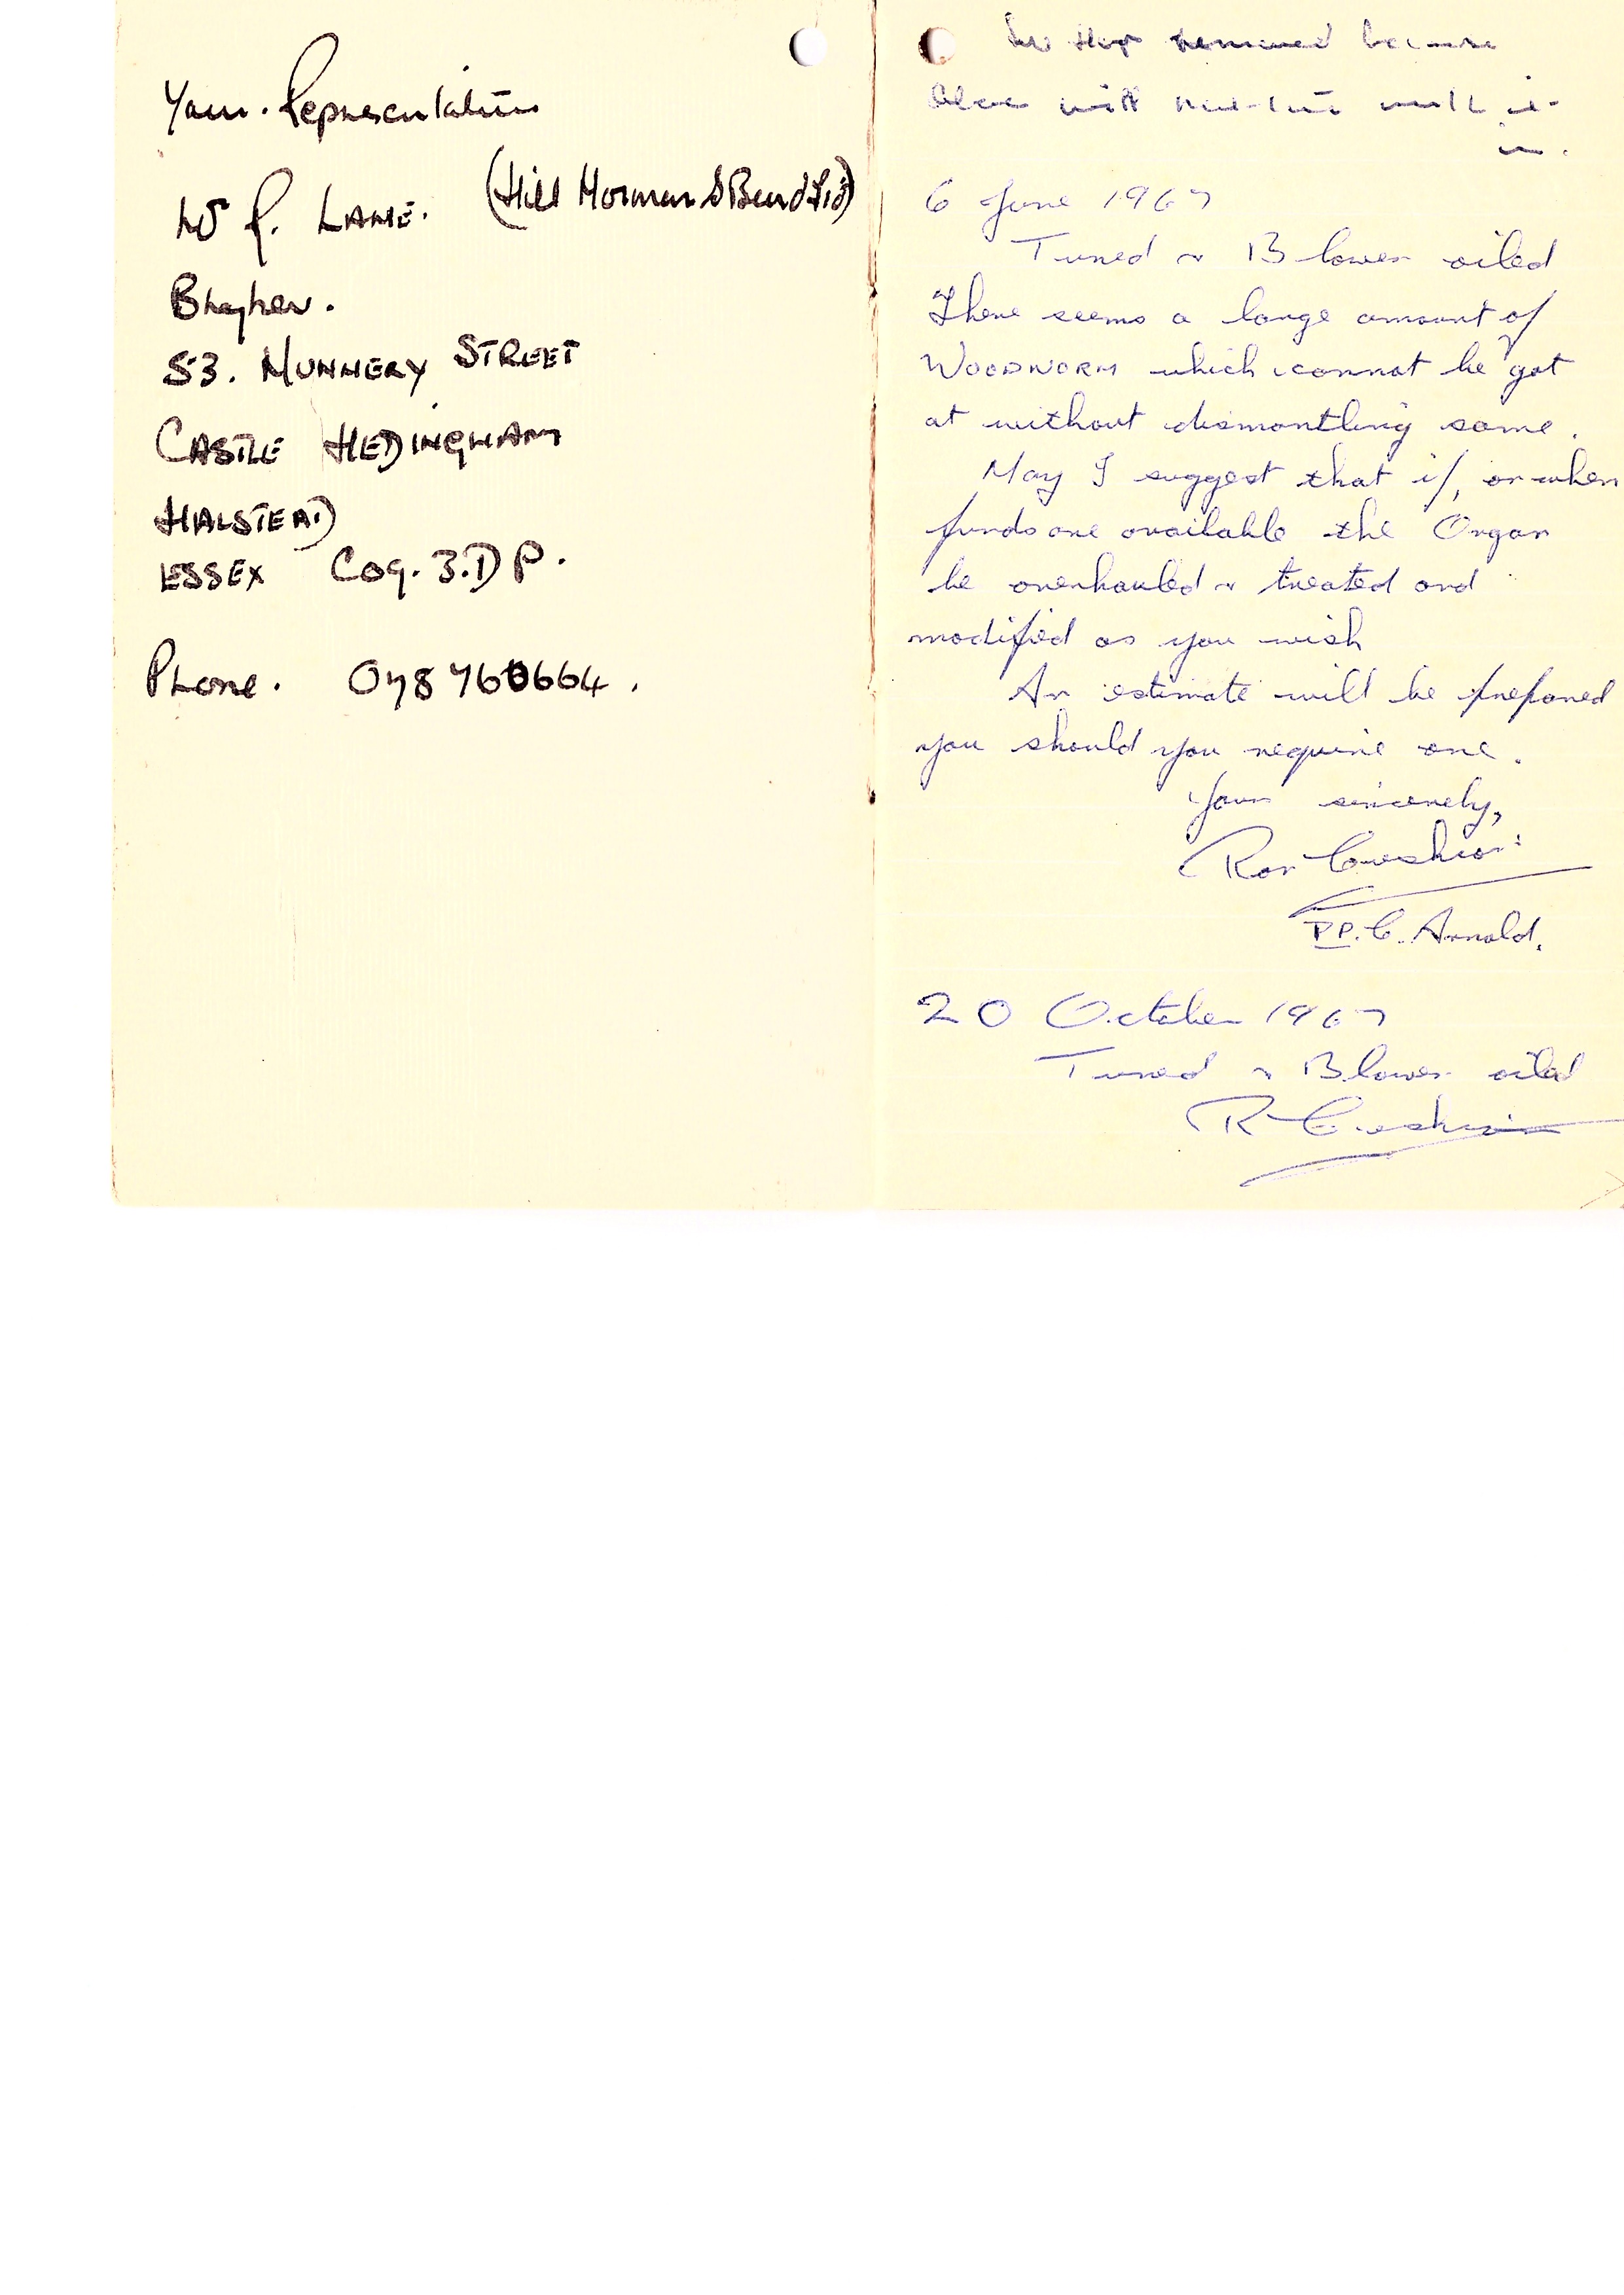 Your Representative
Mr P. LANE. (Hill Norman & Beard Ltd)
53. NUNNERY STREET
CASTLE HEDINGHAM
HALSTEAD
ESSEX CO9. 3.DP.
Phone. 0787 60664.
removed because
will
6 June 1967
Tuned & Blower oiled
There seems a large amount of
WOODWORM which cannot be got
at without dismantling same.
May I suggest that if, or when
funds are available the Organ
be overhauled & treated and
modified as you wish
An estimate will be prepared
you should you require one.
Yours sincerely,
Ron
PP. C. Arnold.
20 October 1967
Tuned & Blower oiled
R